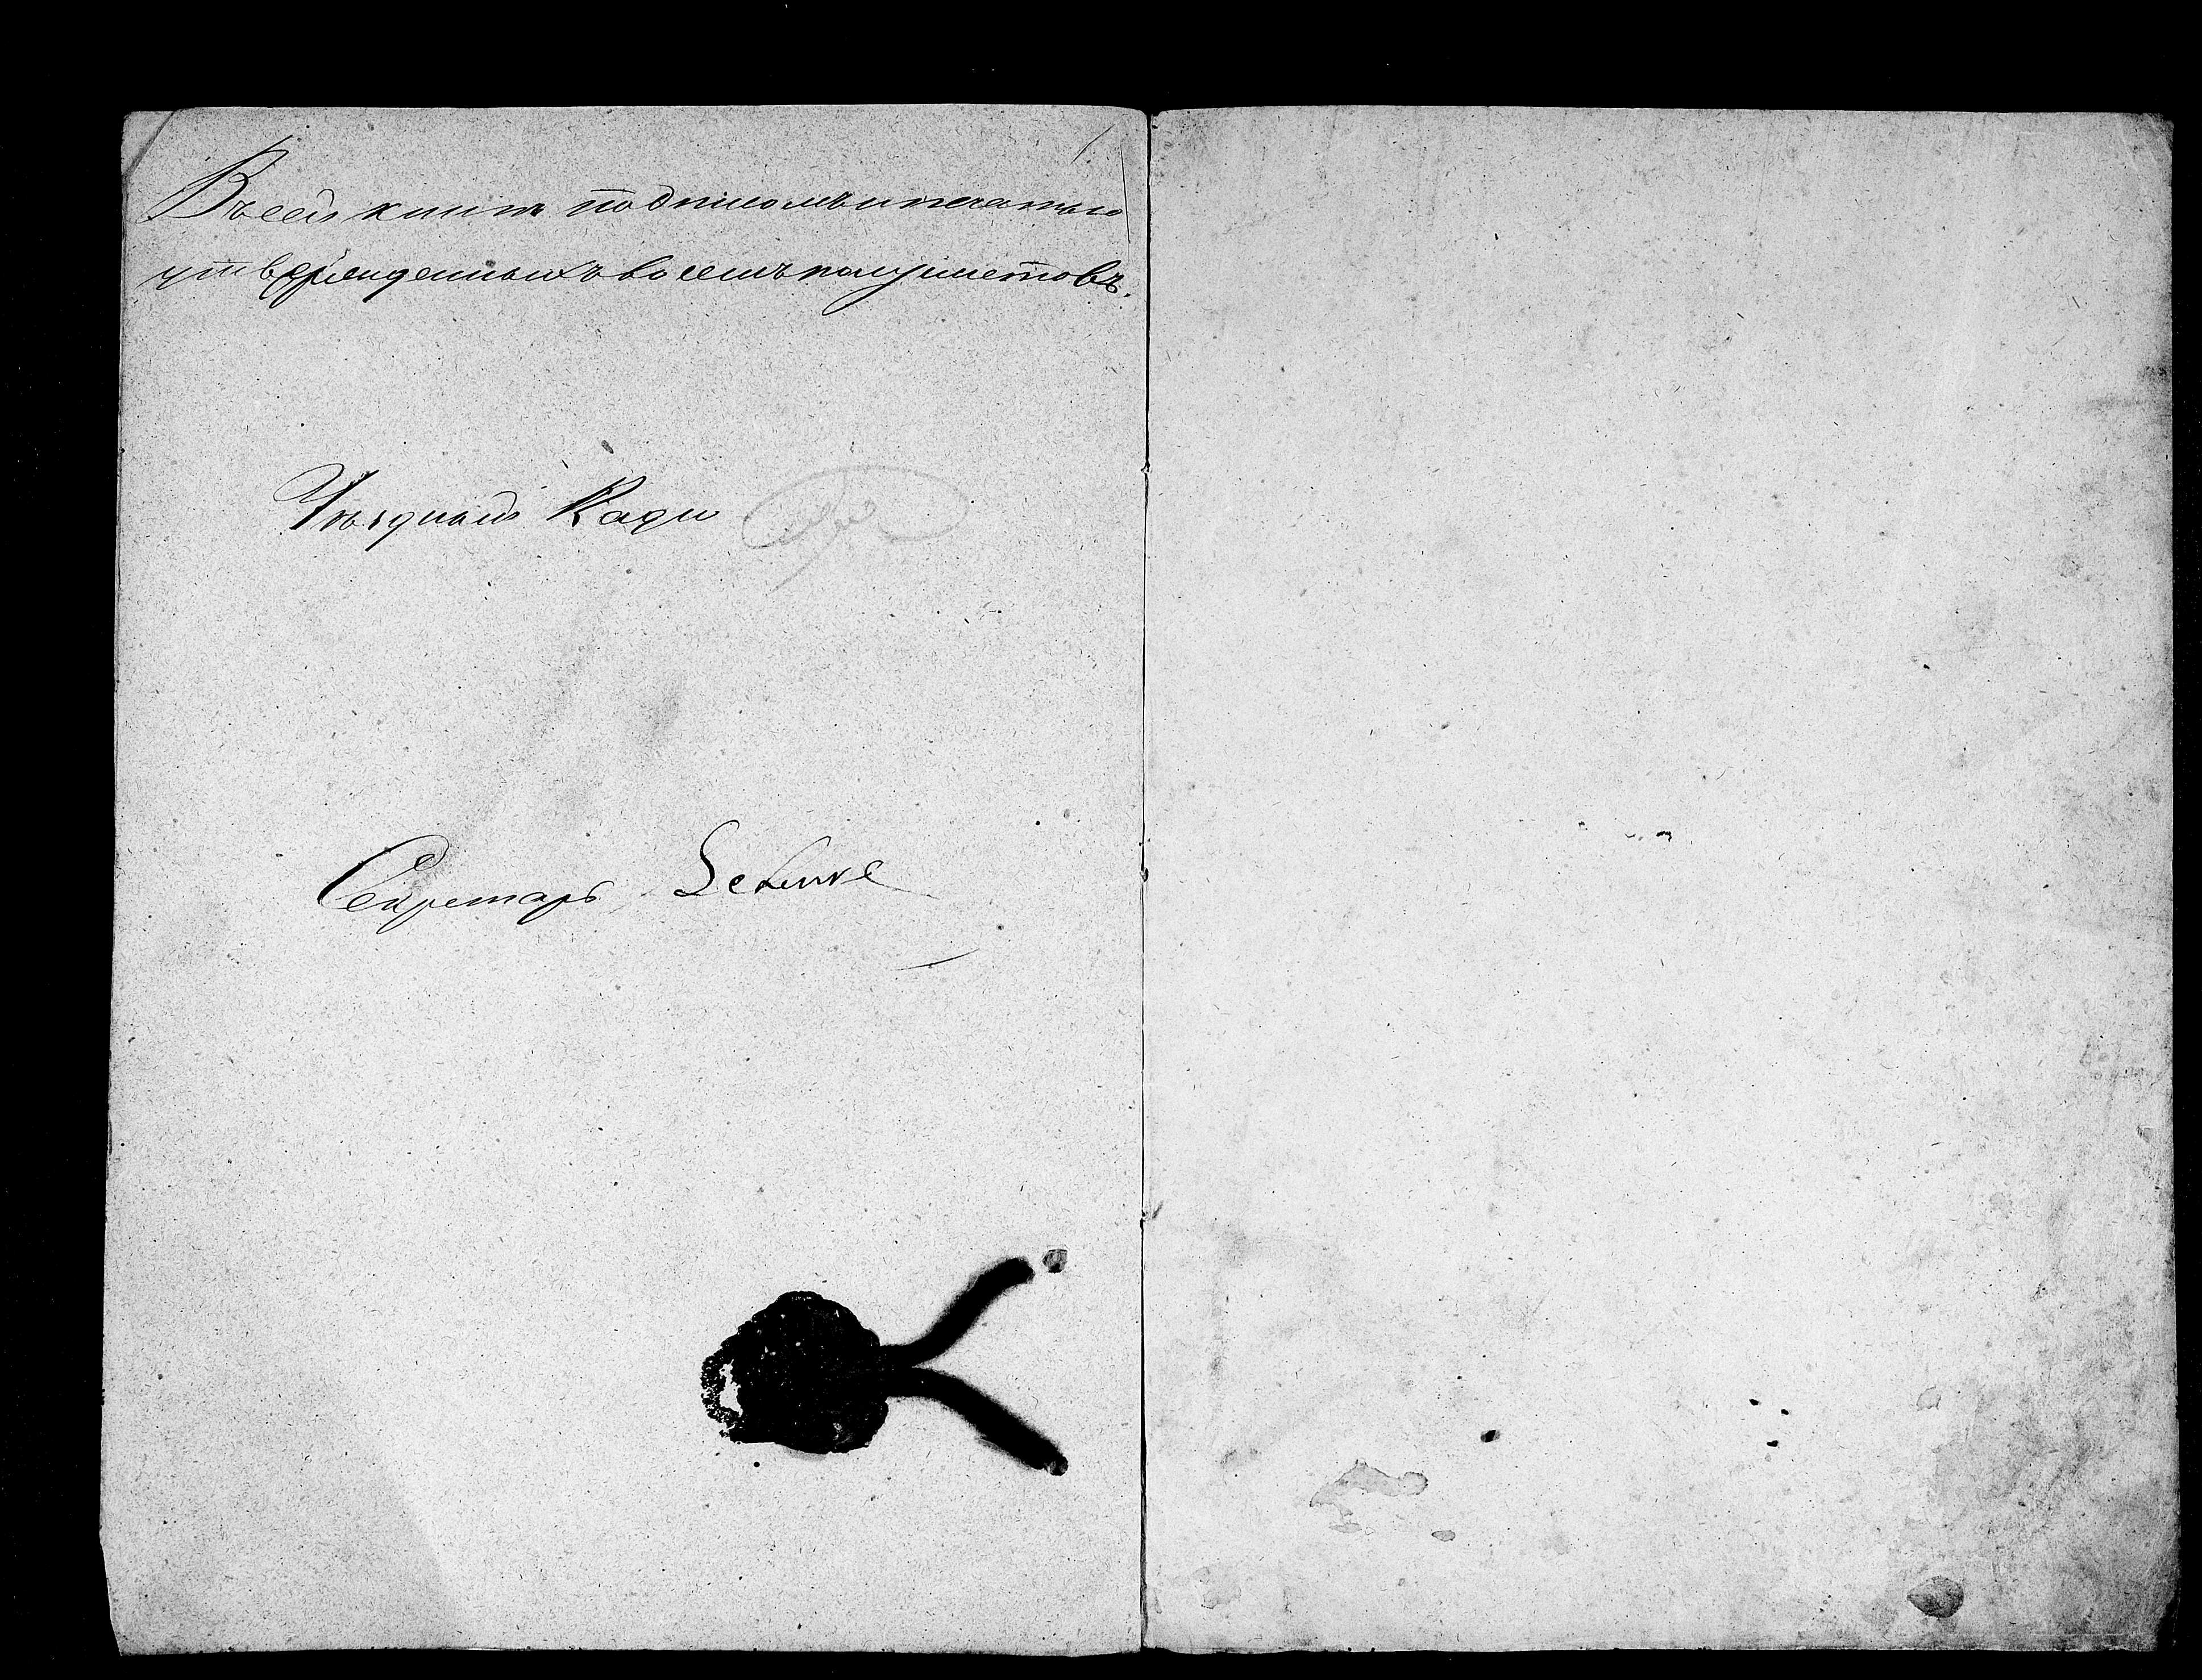 Въ сей книге подписомъ и печатью
утвержденныхъ восемъ полулистовъ.
Уѣздный Кади
Секретарь